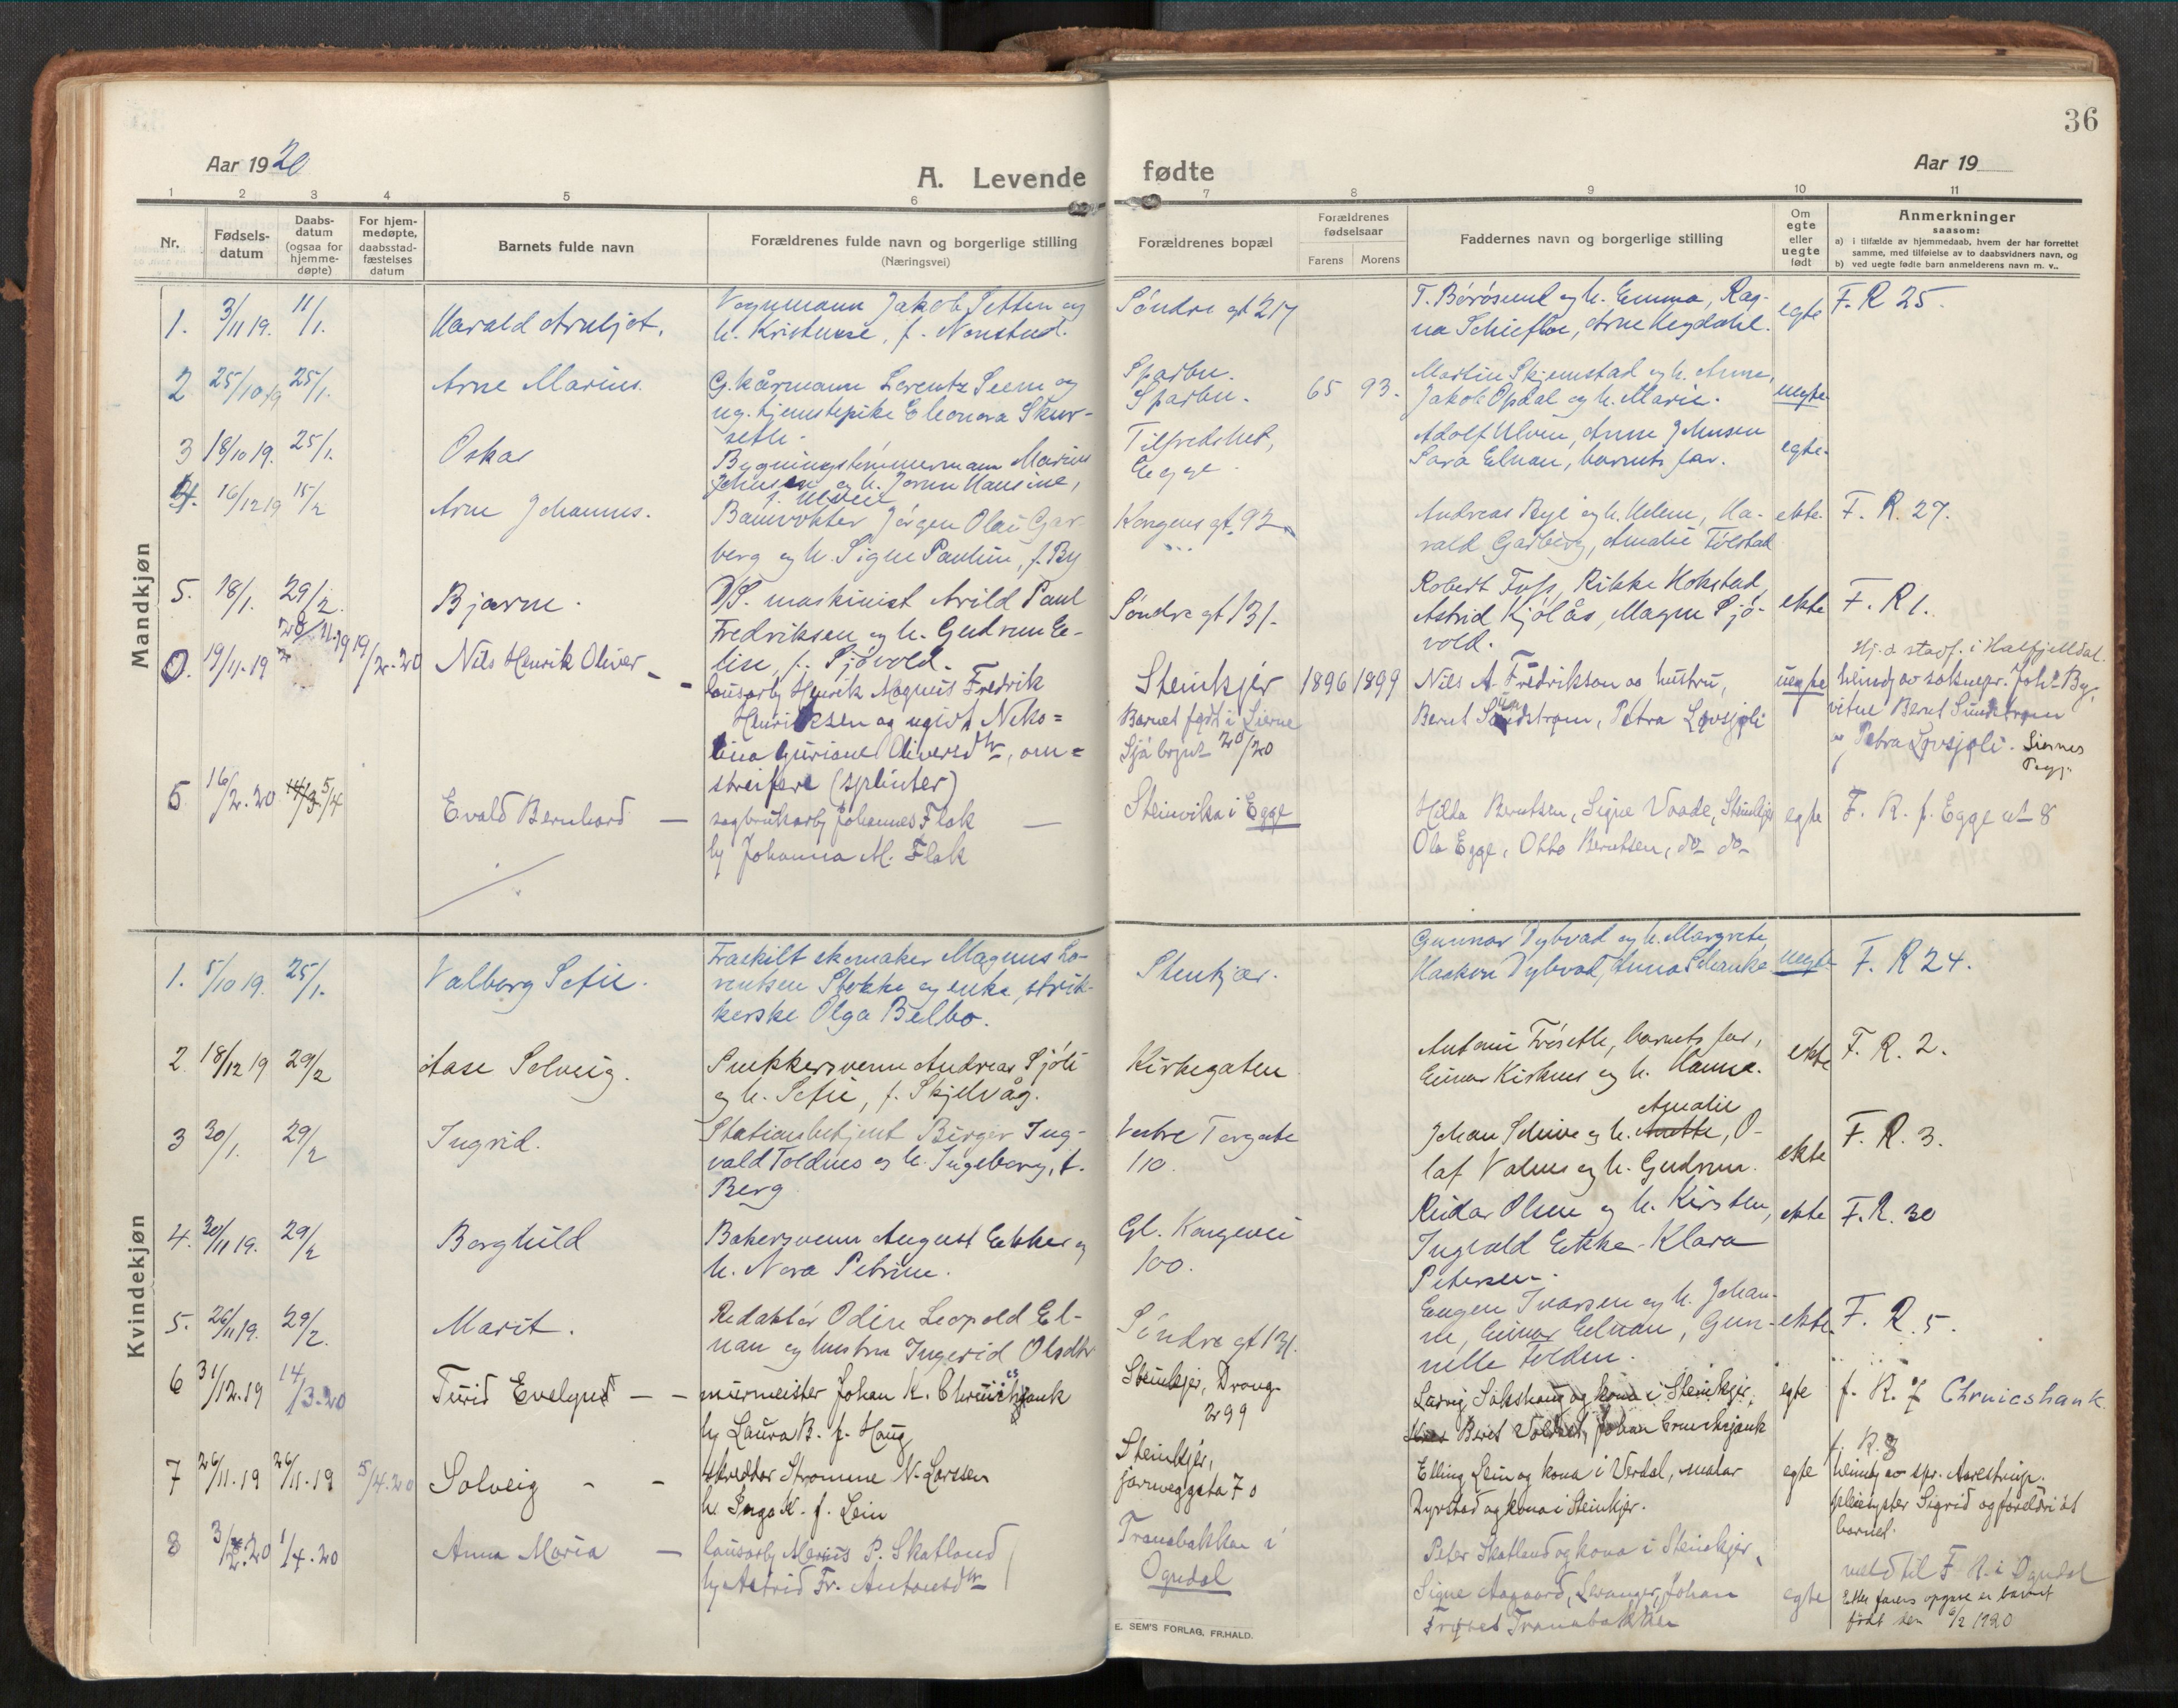 36
Aar 1920
A. Levende fødte
Aar 19
1 2 3 4 5 6 7 8 9 10 11
Nr.
Fødsels-
datum
Daabs-
datum
(ogsaa for
hjemme-
døpte)
For hjem-
medøpte,
daabsstad-
fæstelses
datum
Barnets fulde navn
Forældrenes fulde navn og borgerlige stilling
(Næringsvei)
Forældrenes bopæl
Forældrenes
fødselsaar
Farens Morens
Faddernes navn og borgerlige stilling
Om
egte
eller
uegte
født
Anmerkninger
saasom:
a) i tilfælde av hjemmedaab, hvem der har forrettet
samme, med tilføielse av to daabsvidners navn, og
b) ved uegte fødte barn anmelderens navn m. v..
Mandkjøn
1. 3/11 19. 11/1. Harald Arnljot.
Vognmann Jakob Setten og
h. Kristine, f. Nonstad.
Søndre gt 217
T. Børøsund og h. Emma, Rag-
na Schieflo, Arne Hegdahl.
egte F. R 25.
2 25/10 19 25/1. Arne Marius.
G. kårmann Lorentz Seem og
ug. tjenstepike Eleonora Skur-
seth.
Sparbu.
Sparbu.
65 93.
Martin Skjemstad og h. Anne,
Jakob Opdal og h. Marie.
uegte
3 18/10 19. 25/1. Oskar
Bygningstømmermann Marius
Johnsen og h. Jorun Hansine,
f. Ulven
Tilfredshet,
Egge.
Adolf Ulven, Anne Johnsen
Sara Elnan, barnets far.
egte.
4. 16/12 19 15/2 Arne Johannes.
Banevokter Jørgen Olai Gar-
berg og h. Signe Pauline, f. By
Kongens gt. 92
Andreas Bye og h. Helene, Ha-
rald Garberg, Amalie Tølstad
ekte. F. R. 27.
5. 18/1. 29/2. Bjarne.
D/S. maskinist Arild Paul
Fredriksen og h. Gudrun E-
lise, f. Sjøvold.
Søndre gt 131.
Robert Foss, Rikke Hokstad
Astrid Kjølås, Magne Sjø-
vold.
ekte F. R 1.
0. 19/11-19 19/2-20 Nils Henrik Oliver -
lausarb Henrik Magnus Fredrik
Henriksen og ugivt Niko=
lina Guriane Oliversdtr, om=
streifere (splinter)
Steinkjer
Barnet født i Lierne
1896 1899
Nils A. Fredrikson og hustru,
Bernt Sundstrøm, Petra Løvsjøli
uegte
heimdp av sóknepr. Joh. By,
vitne Bernt Sundstrøm
og Petra Løvsjøli.
6 16/2.20 5/4 Evald Bernhard —
sagbrukarb Johannes Flak —
h Johanna M. Flak
Steinvika i Egge
Hilda Berntsen, Signe Vaade, Steinkjer
Ola Egge, Otto Berntsen, do do
egte F. R. f. Egge nt 8
Kvindekjøn
1. 5/10 19. 25/1. Valborg Sofie.
Fraskilt skomaker Magnus Lo-
rentsen Stokke og enke, strik-
kerske Olga Belbo.
Stenkjær.
Gunnar Dybvad og h. Margrete,
Haakon Dybvad, Anna Schanke
uegte F. R 24.
2 18/12 19 29/2 Aase Solveig.
Snekkersvenn Andreas Sjøli
og h. Sofie, f. Skjelvåg.
Kirkegaten
Antonie Frøseth, barnets far,
Einar Kirknes og h. Hanna.
ekte F. R. 2.
3 30/1. 29/2 Ingrid.
Stationsbetjent Birger Ing-
vald Toldnes og h. Ingeborg, f.
Berg
Vestre Torgate
110.
Amalie
Johan Schive og h. Anette, O-
laf Valnes og h. Gudrun.
ekte F. R. 3.
4. 30/11 19. 29/2 Borghild
Bakersvenn August Ekker og
h. Nora Petrine.
Gl. Kongevei
100.
Reidar Olsen og h. Kirsten,
Ingvald Ekker - Klara
Petersen.
ekte F. R. 30
5. 26/11 19. 29/2. Marit.
Redaktør Odin Leopold El-
nan og hustru Ingerid Olsdtr
Søndre gt 131.
Eugen Ivarsen og h. Johan-
ne, Einar Elnan, Gun-
nille Folden.
ekte. F. R. 5.
6 31/12.19 14/3-20 Turid Evelyn — -
murmeister Johan K.
h Laura B. f. Haug
Steinkjer, Drong-
299
Beret
egte f. R. Chruicshank.
7 26/11-19 26/11-19 5/4.20 Solveig - -
skreddar Stromme N. Larssen
h Inga K. f. Lein
Steinkjer,
jarnveggata 70
Elling Lein og kona i Verdal, malar
Ryrstad og kona i Steinkjer.
egte
f. R. 8
heimdp av spr. Aarestrup.
pleiesyster Sigrid og foreldri åt
barnet.
8 3/2.20 1/4-20 Anna Maria —
lausarb Marius P. Skatland
h Astrid Fr. Antonsdtr
Tranabakkan i
Ogndal
Peter Skatland og kona i Steinkjer,
Signe Aagaard, Levanger, Johan
Tranabakken
egte
meld til F. R. i Ogndal
Etter farens opgave er barnet
født den 6/2 1920
E. SEM'S FORLAG, FR.HALD.